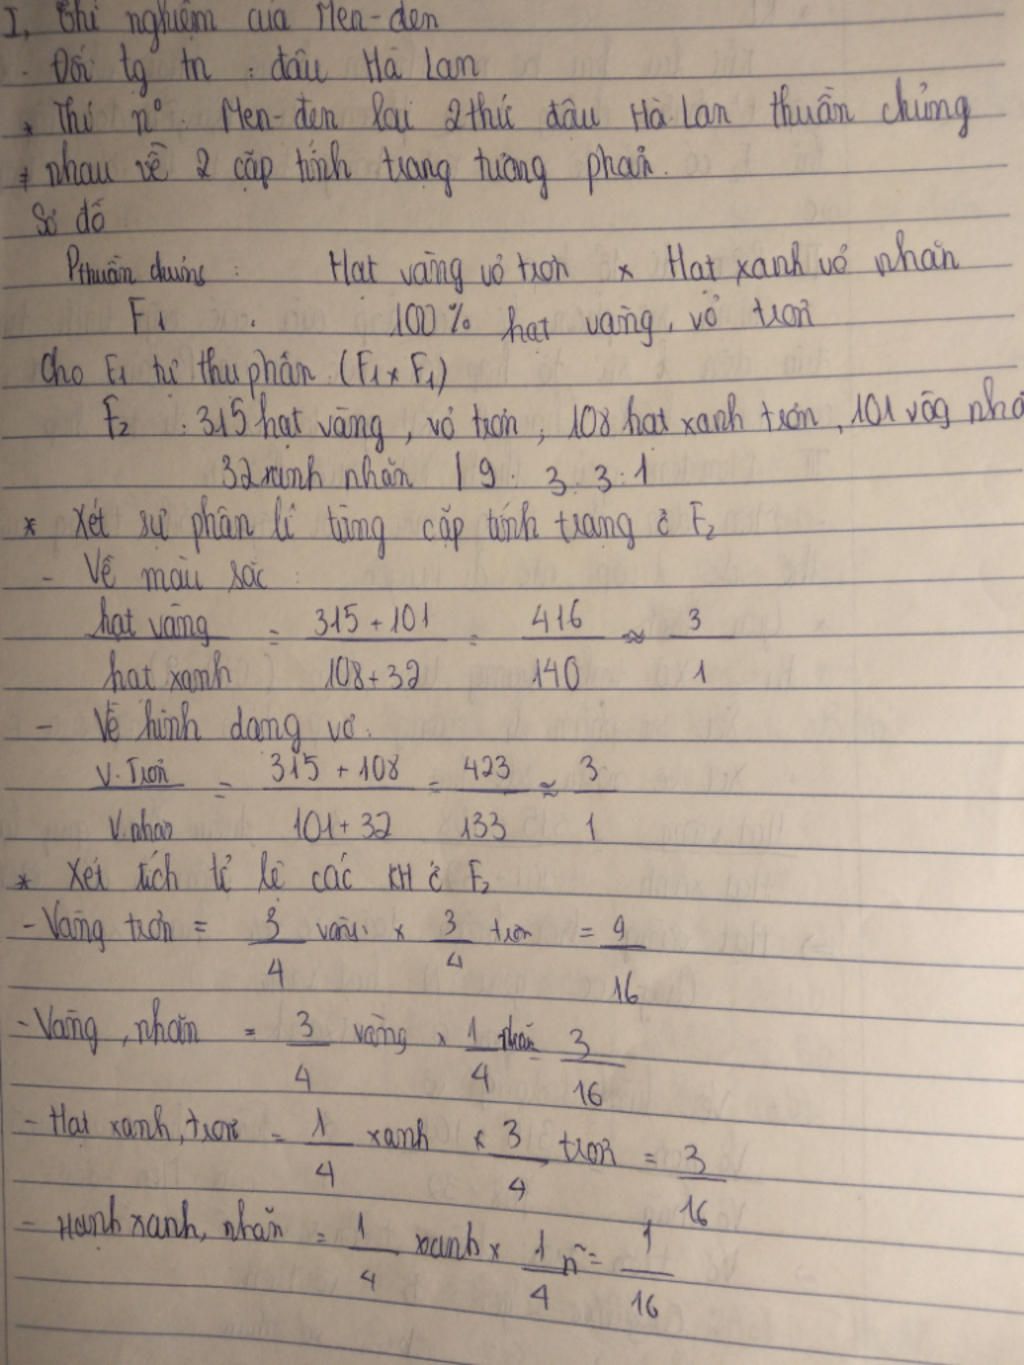 I, Thí nghiệm của Men-đen
- Đối tg tn : đậu Hà Lan
* Thí nº. Men-đen lai 2 thứ đậu Hà Lan thuần chủng
≠ nhau về 2 cặp tính trạng tương phản.
Sơ đồ
P thuần chủng : Hạt vàng vỏ trơn x Hạt xanh vỏ nhăn
F1 : 100% hạt vàng, vỏ trơn
Cho F1 tự thụ phấn (F1 x F1)
F2 : 315 hạt vàng, vỏ trơn, 108 hạt xanh trơn, 101 vàg nhă
32 xanh nhăn | 9 : 3 : 3 : 1
* Xét sự phân li từng cặp tính trạng ở F2
- Về màu sắc :
hạt vàng = 315 + 101 = 416 ≈ 3
hạt xanh 108 + 32 140 1
- Về hình dạng vỏ.
V. Trơn = 315 + 108 = 423 ≈ 3
V. nhăn 101 + 32 133 1
* Xét tích tỉ lệ các KH ở F2
- Vàng trơn = 3 vàng x 3 trơn = 9
4 4 16
- Vàng, nhăn = 3 vàng x 1 nhăn = 3
4 4 16
- Hạt xanh, trơn = 1 xanh x 3 trơn = 3
4 4 16
- Hạnh xanh, nhăn = 1 xanh x 1 n~ = 1
4 4 16